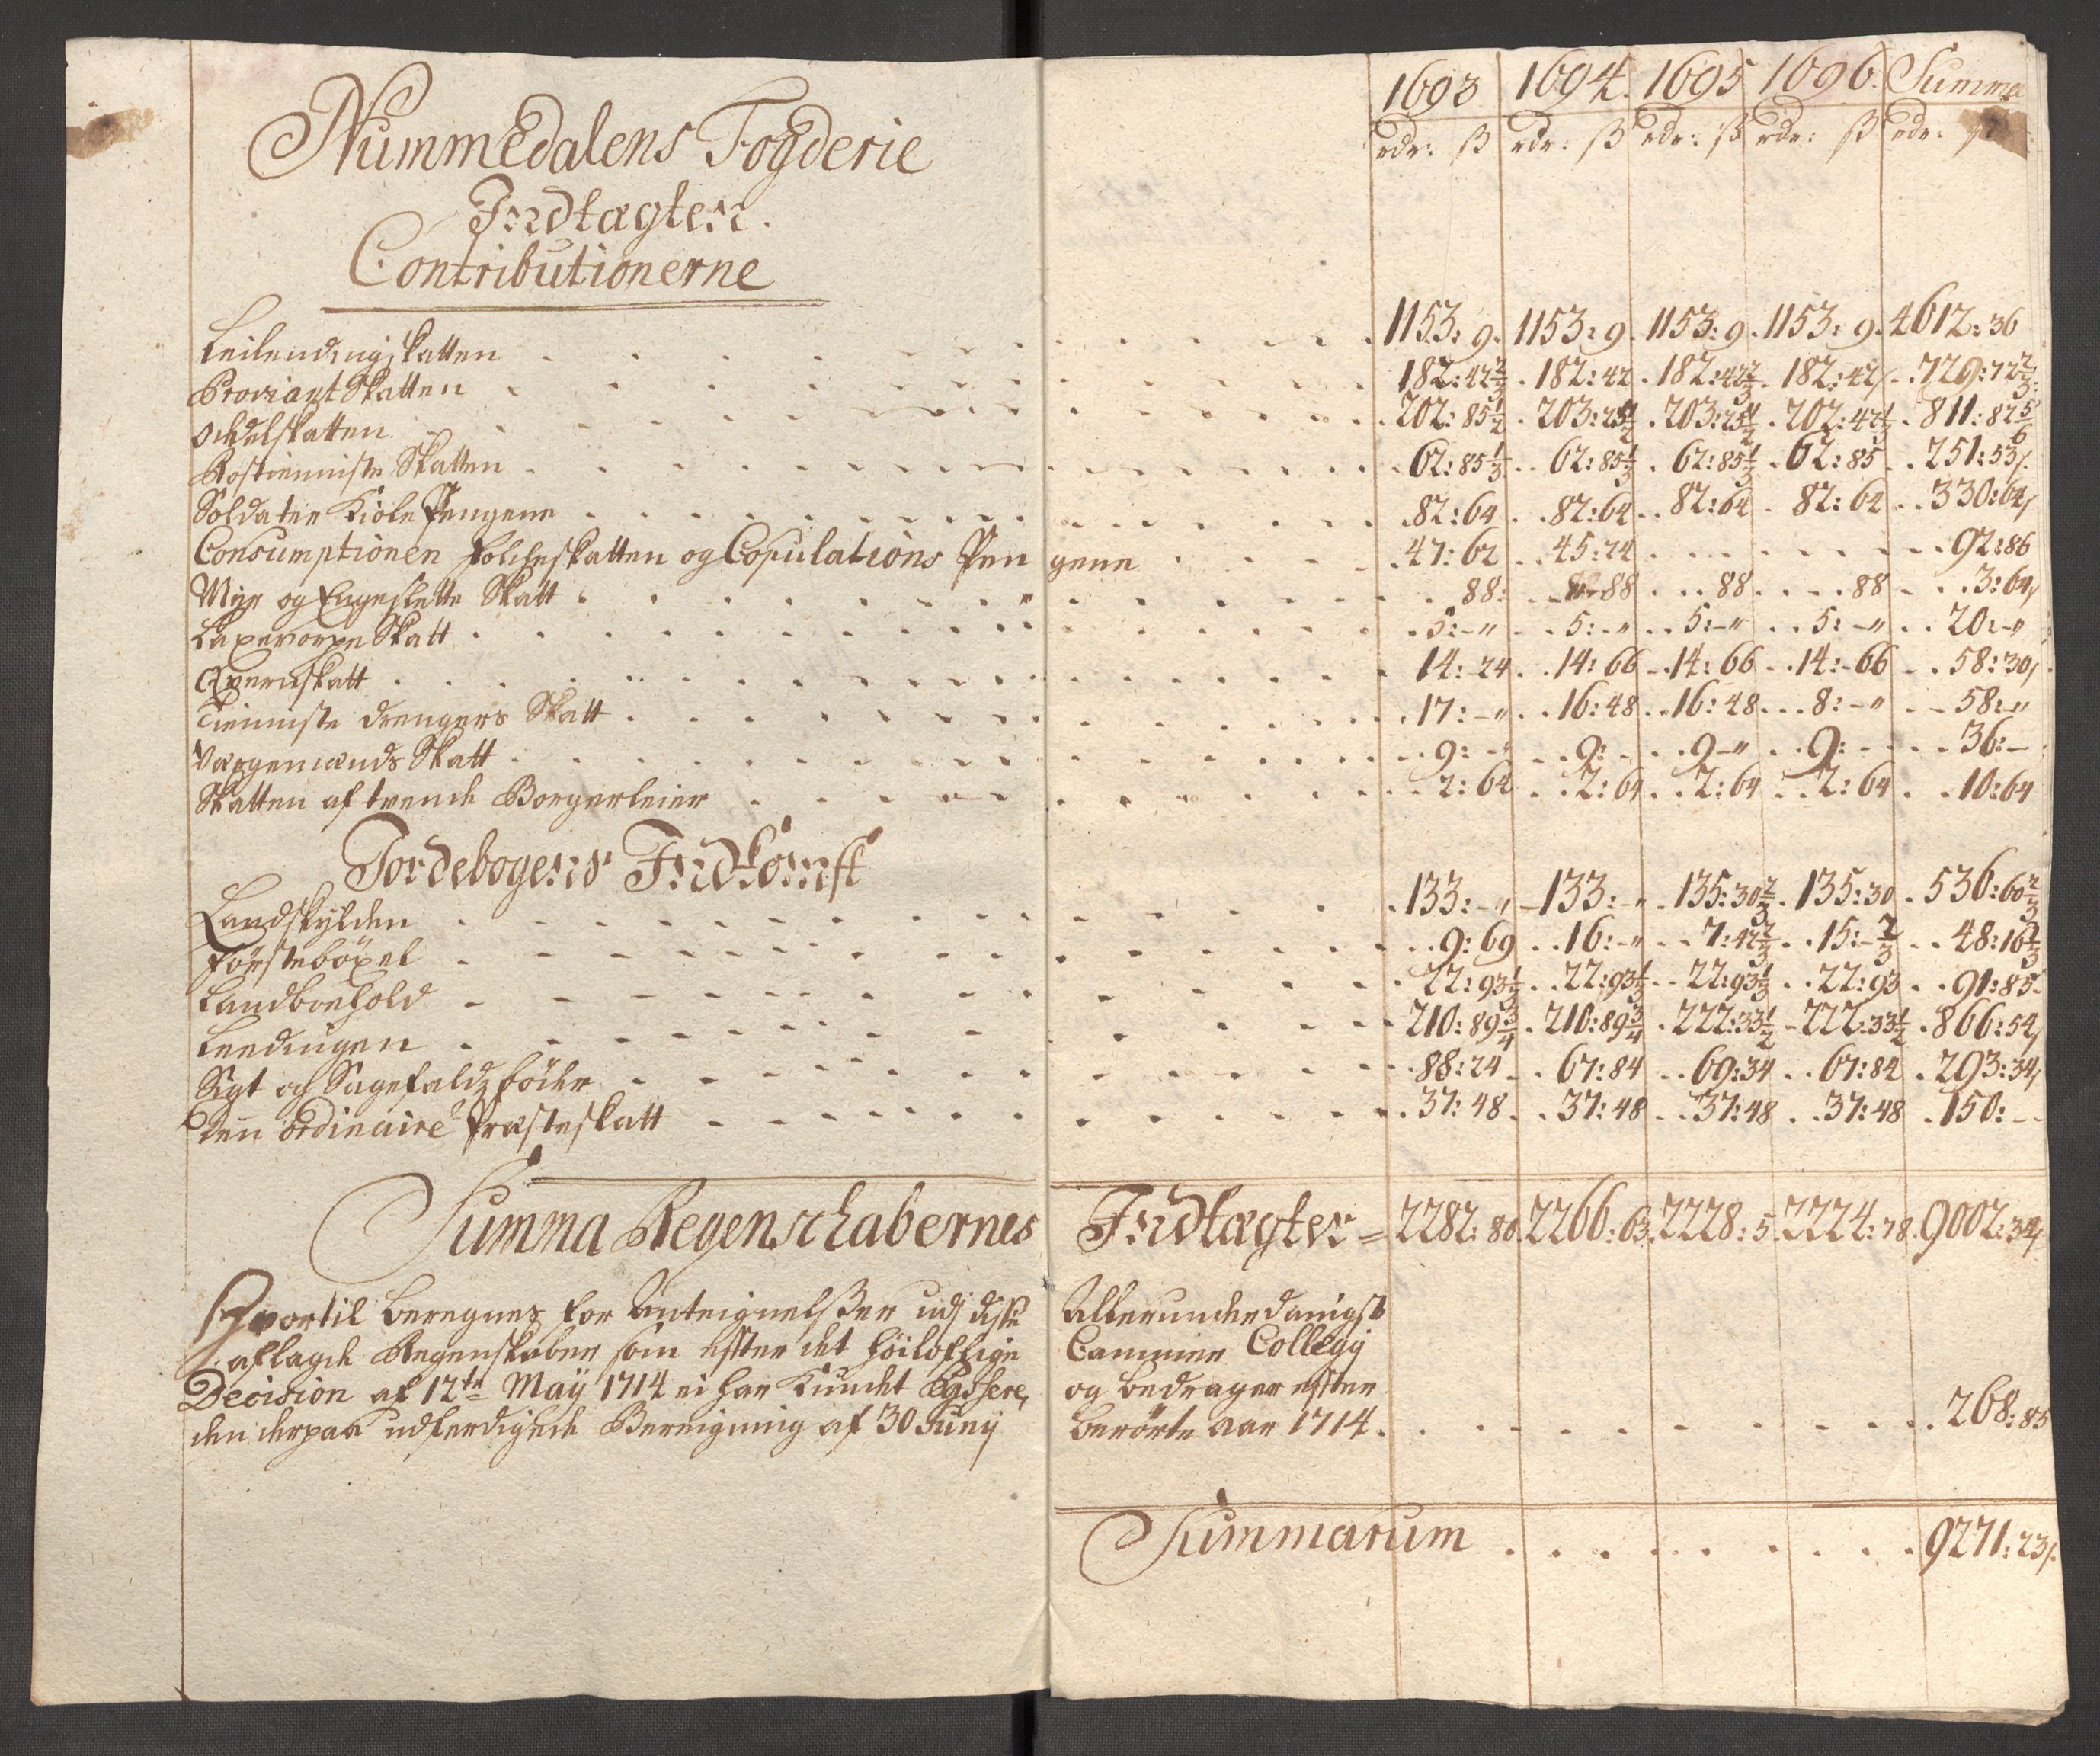 1693 1694. 1695 1696. Summa
rdr: ß rdr: ß rdr: ß rdr: ß rdr: ß
Nummedalens Fogderie
Indtægter.
Contributionerne
Leilendingskatten 1153: 9. 1153: 9. 1153: 9. 1153: 9. 4612: 36
Proviant Skatten 182: 42 2/3 182: 42 182: 42 2/3 182: 42 729: 72 2/3
Odelskatten 202: 85 1/2 203: 25 1/2 203: 25 1/2 202: 42 1/3 811: 82 5/6
Rostienniste Skatten 62: 85 1/3 62: 85 1/3 62: 85 1/3 62: 85 251: 53
Soldater Kiole Pengene 82: 64 82: 64 82: 64 82: 64 330: 64
Consumptionen Folcheskatten og Copulations Pengene 47: 62 45: 24 92: 86
Myr og Engeslette Skatt 88: 88 88 88 3: 64
Laxevorpe Skatt 5: -" 5: -" 5: -" 5: -" 20: -"
Qvernskatt 14: 24 14: 66 14: 66 14: 66 58: 30
Tienniste drengers Skatt 17: -" 16: 48 16: 48 8: -" 58: -"
Vergemænds Skatt 9: -" 9: - 9 -" 9: - 36: -
Skatten af tvende Borgerleier 2: 64 2: 64 2: 64 2: 64 10: 64
Jordebogens Indkomst
Landskylden 133: -" 133: -" 135: 30 2/3 135: 30 536: 60 2/3
Försteböxel 9: 69 16: -" 7: 42 2/3 15: - 2/3 48: 16 1/3
Landboehold 22: 93 1/3 22: 93 1/3 22: 93 1/3 22: 93 91: 85
Leedingen 210: 89 3/4 210: 89 3/4 222: 33 1/2 222: 33 1/2 866: 54
Sigt och Sagefaldz böder 88: 24 67: 84 69: 34 67: 84 293: 34
Den ordinaire Præsteskatt 37: 48 37: 48 37: 48 37: 48 150: -
Summa Regenschabernes Indtægter = 2282: 80 2266: 63 2228: 5 2224: 78 9002: 34
Hvortil beregnes for Anteignelßer udj diße Allerunderdanigst
aflagde Regenskaber som efter det höiloflige Cammer Collegij
Decision af 12te Maij 1714 ei har Kundet og bedrager efter
den derpaa udferdigede Bereigning af 30 Junij berörte aar 1714. 268: 85
Summarum 9271: 23